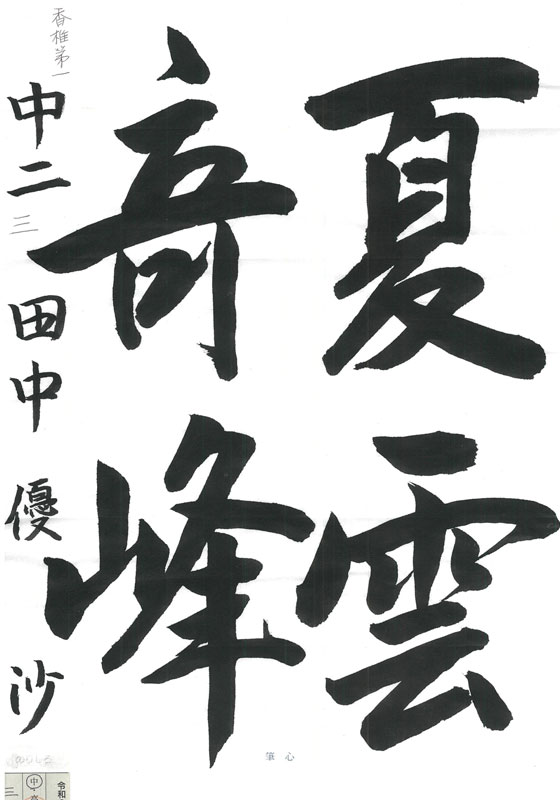 夏雲
奇峰
香椎第一
中二 三 田中 優沙
心筆
令和
中
三